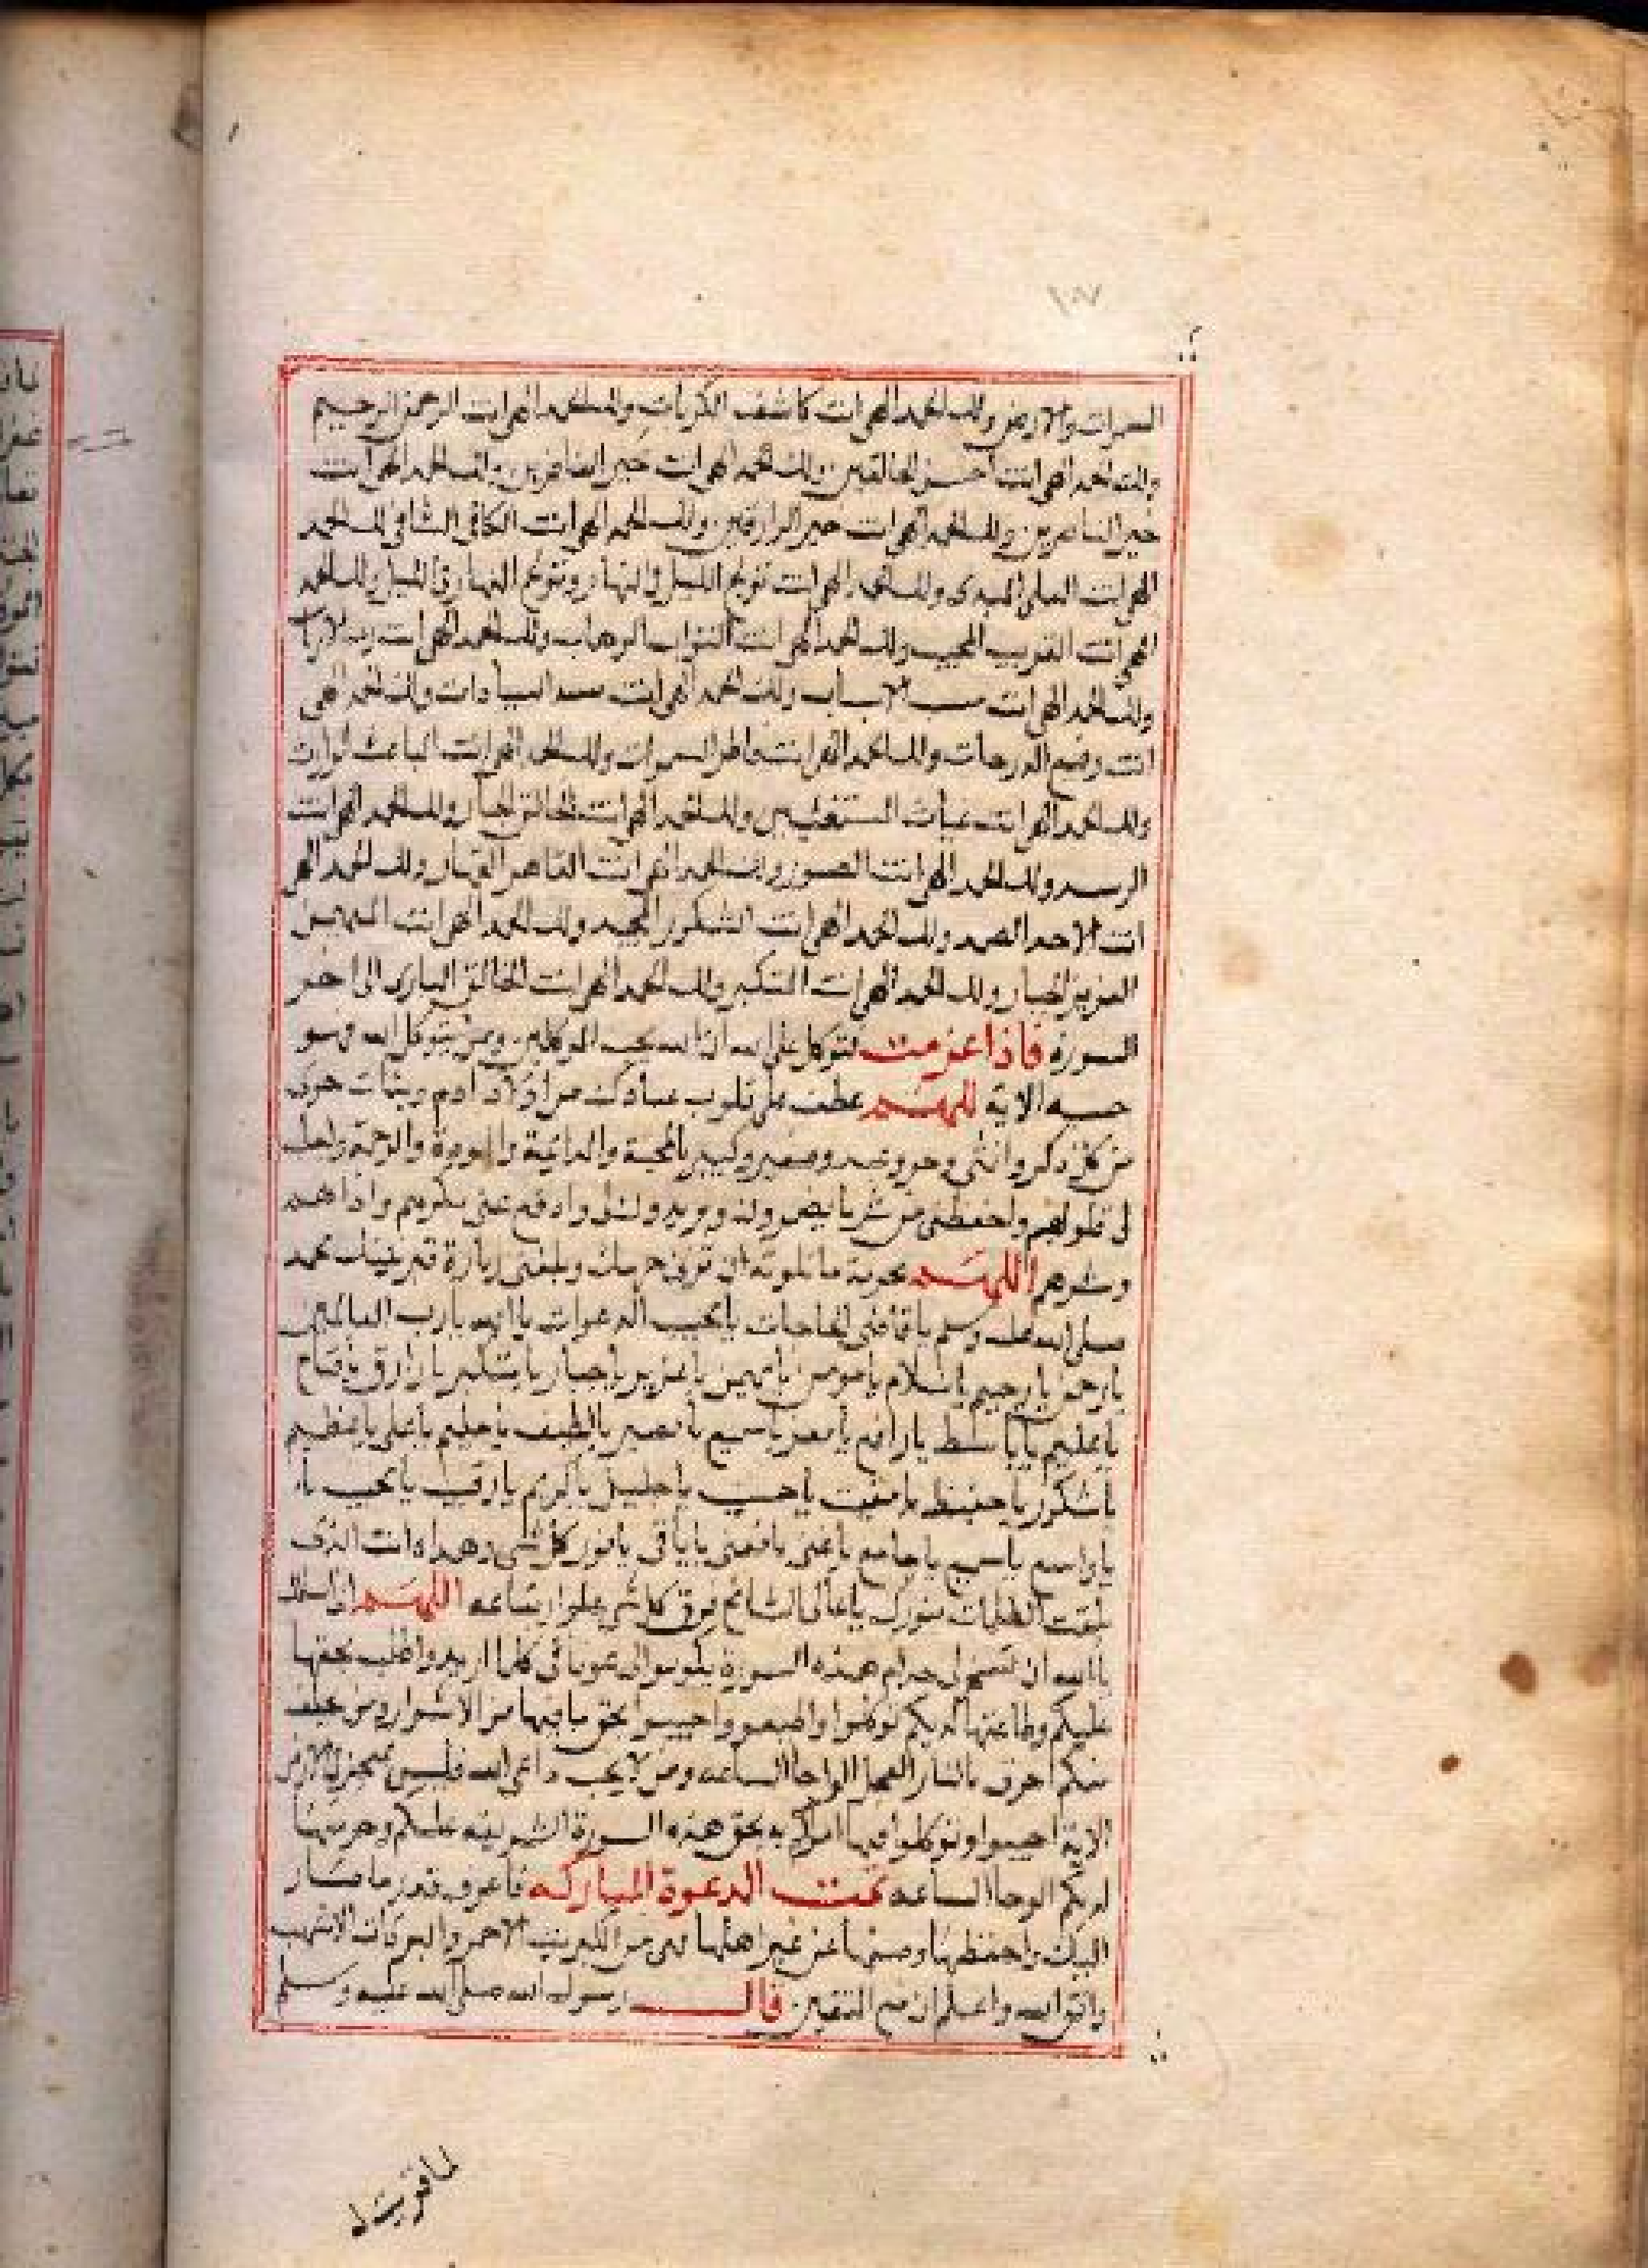 السموات والارض ولك الحمد الهي انت كاشف الكربات ولك الحمد الهي انت الرحمن الرحيم
ولك الحمد الهي انت احسن الخالقين ولك الحمد الهي انت خير الغافرين ولك الحمد الهي انت
خير الناصرين ولك الحمد الهي انت خير الرازقين ولك الحمد الهي انت الكافي الشافي لك الحمد
الهي انت العلي المبدي ولك الحمد الهي انت تولج الليل في النهار وتولج النهار في الليل ولك الحمد
الهي انت القريب المجيب ولك الحمد الهي انت التواب الوهاب ولك الحمد الهي انت رب الارباب
ولك الحمد الهي انت مسبب الاسباب ولك الحمد الهي انت سيد السادات ولك الحمد الهي
انت رفيع الدرجات ولك الحمد الهي انت فاطر السموات ولك الحمد الهي انت الباعث الوارث
ولك الحمد الهي انت غياث المستغيثين ولك الحمد الهي انت الخالق الجبار ولك الحمد الهي انت
الرشيد ولك الحمد الهي انت الصبور ولك الحمد الهي انت القاهر القهار ولك الحمد الهي
انت الاحد الصمد ولك الحمد الهي انت الشكور المجيد ولك الحمد الهي انت المهيمن
العزيز الجبار ولك الحمد الهي انت المتكبر ولك الحمد الهي انت الخالق الباري الى اخر
السورة فاذا عزمت فتوكل على الله ان الله يحب المتوكلين ومن يتوكل على الله فهو
حسبه الاية اللهم عطف علي قلوب عبادك من اولاد ادم وبنات حوى
من كل ذكر وانثى وحر وعبد وصغير وكبير بالمحبة والمودة والرحمة واجعل
لي قلوبهم واحفظني من شر وادفع عني مكرهم واذاهم
وشرهم اللهم بحرمة ما تلوته ان ترزقني وبلغني زيارة قبر نبيك محمد
صلى الله عليه وسلم يا قاضي الحاجات يا مجيب الدعوات يا الله يا رب العالمين
يا رحمن يا رحيم يا سلام يا مومن يا مهيمن يا عزيز يا جبار يا متكبر يا رازق يا فتاح
يا عليم يا باسط يا رافع يا معز يا سميع يا بصير يا لطيف يا حليم يا علي يا عظيم
يا شكور يا حفيظ يا مقيت يا حسيب يا جليل يا كريم يا رقيب يا مجيب يا
يا واسع يا سميع يا جامع يا غني يا مغني يا باقي يا نور كل شي وهداه انت الذي
فلقت الظلمات بنورك يا عالي الشامخ فوق كل شي علو ارتفاعه اللهم اني اسئلك
يا الله ان تسخر لي خدام هذه السورة يكونوا لي عونا في كلما اريد واطلب بحقها
عليكم وطاعتها لديكم توكلوا واطيعوا واجيبوا بحق ما فيها من الاسرار ومن تخلف
منكم احرق بالنار العجل الوحا الساعة ومن لا يجب داعي الله فليس بمعجز في الارض
الاية اجيبوا وتوكلوا فيما امرتكم به بحق هذه السورة الشريفة عليكم وحرمتها
لديكم الوحا الساعة تمت الدعوة المباركه فاعرف قدر ما صار
اليك واحفظها وصنها عن غير اهلها فهي من الكبريت الاحمر والبرهان الاشهب
واتق الله واعلم ان مع المتقين قال رسول الله صلى الله عليه وسلم